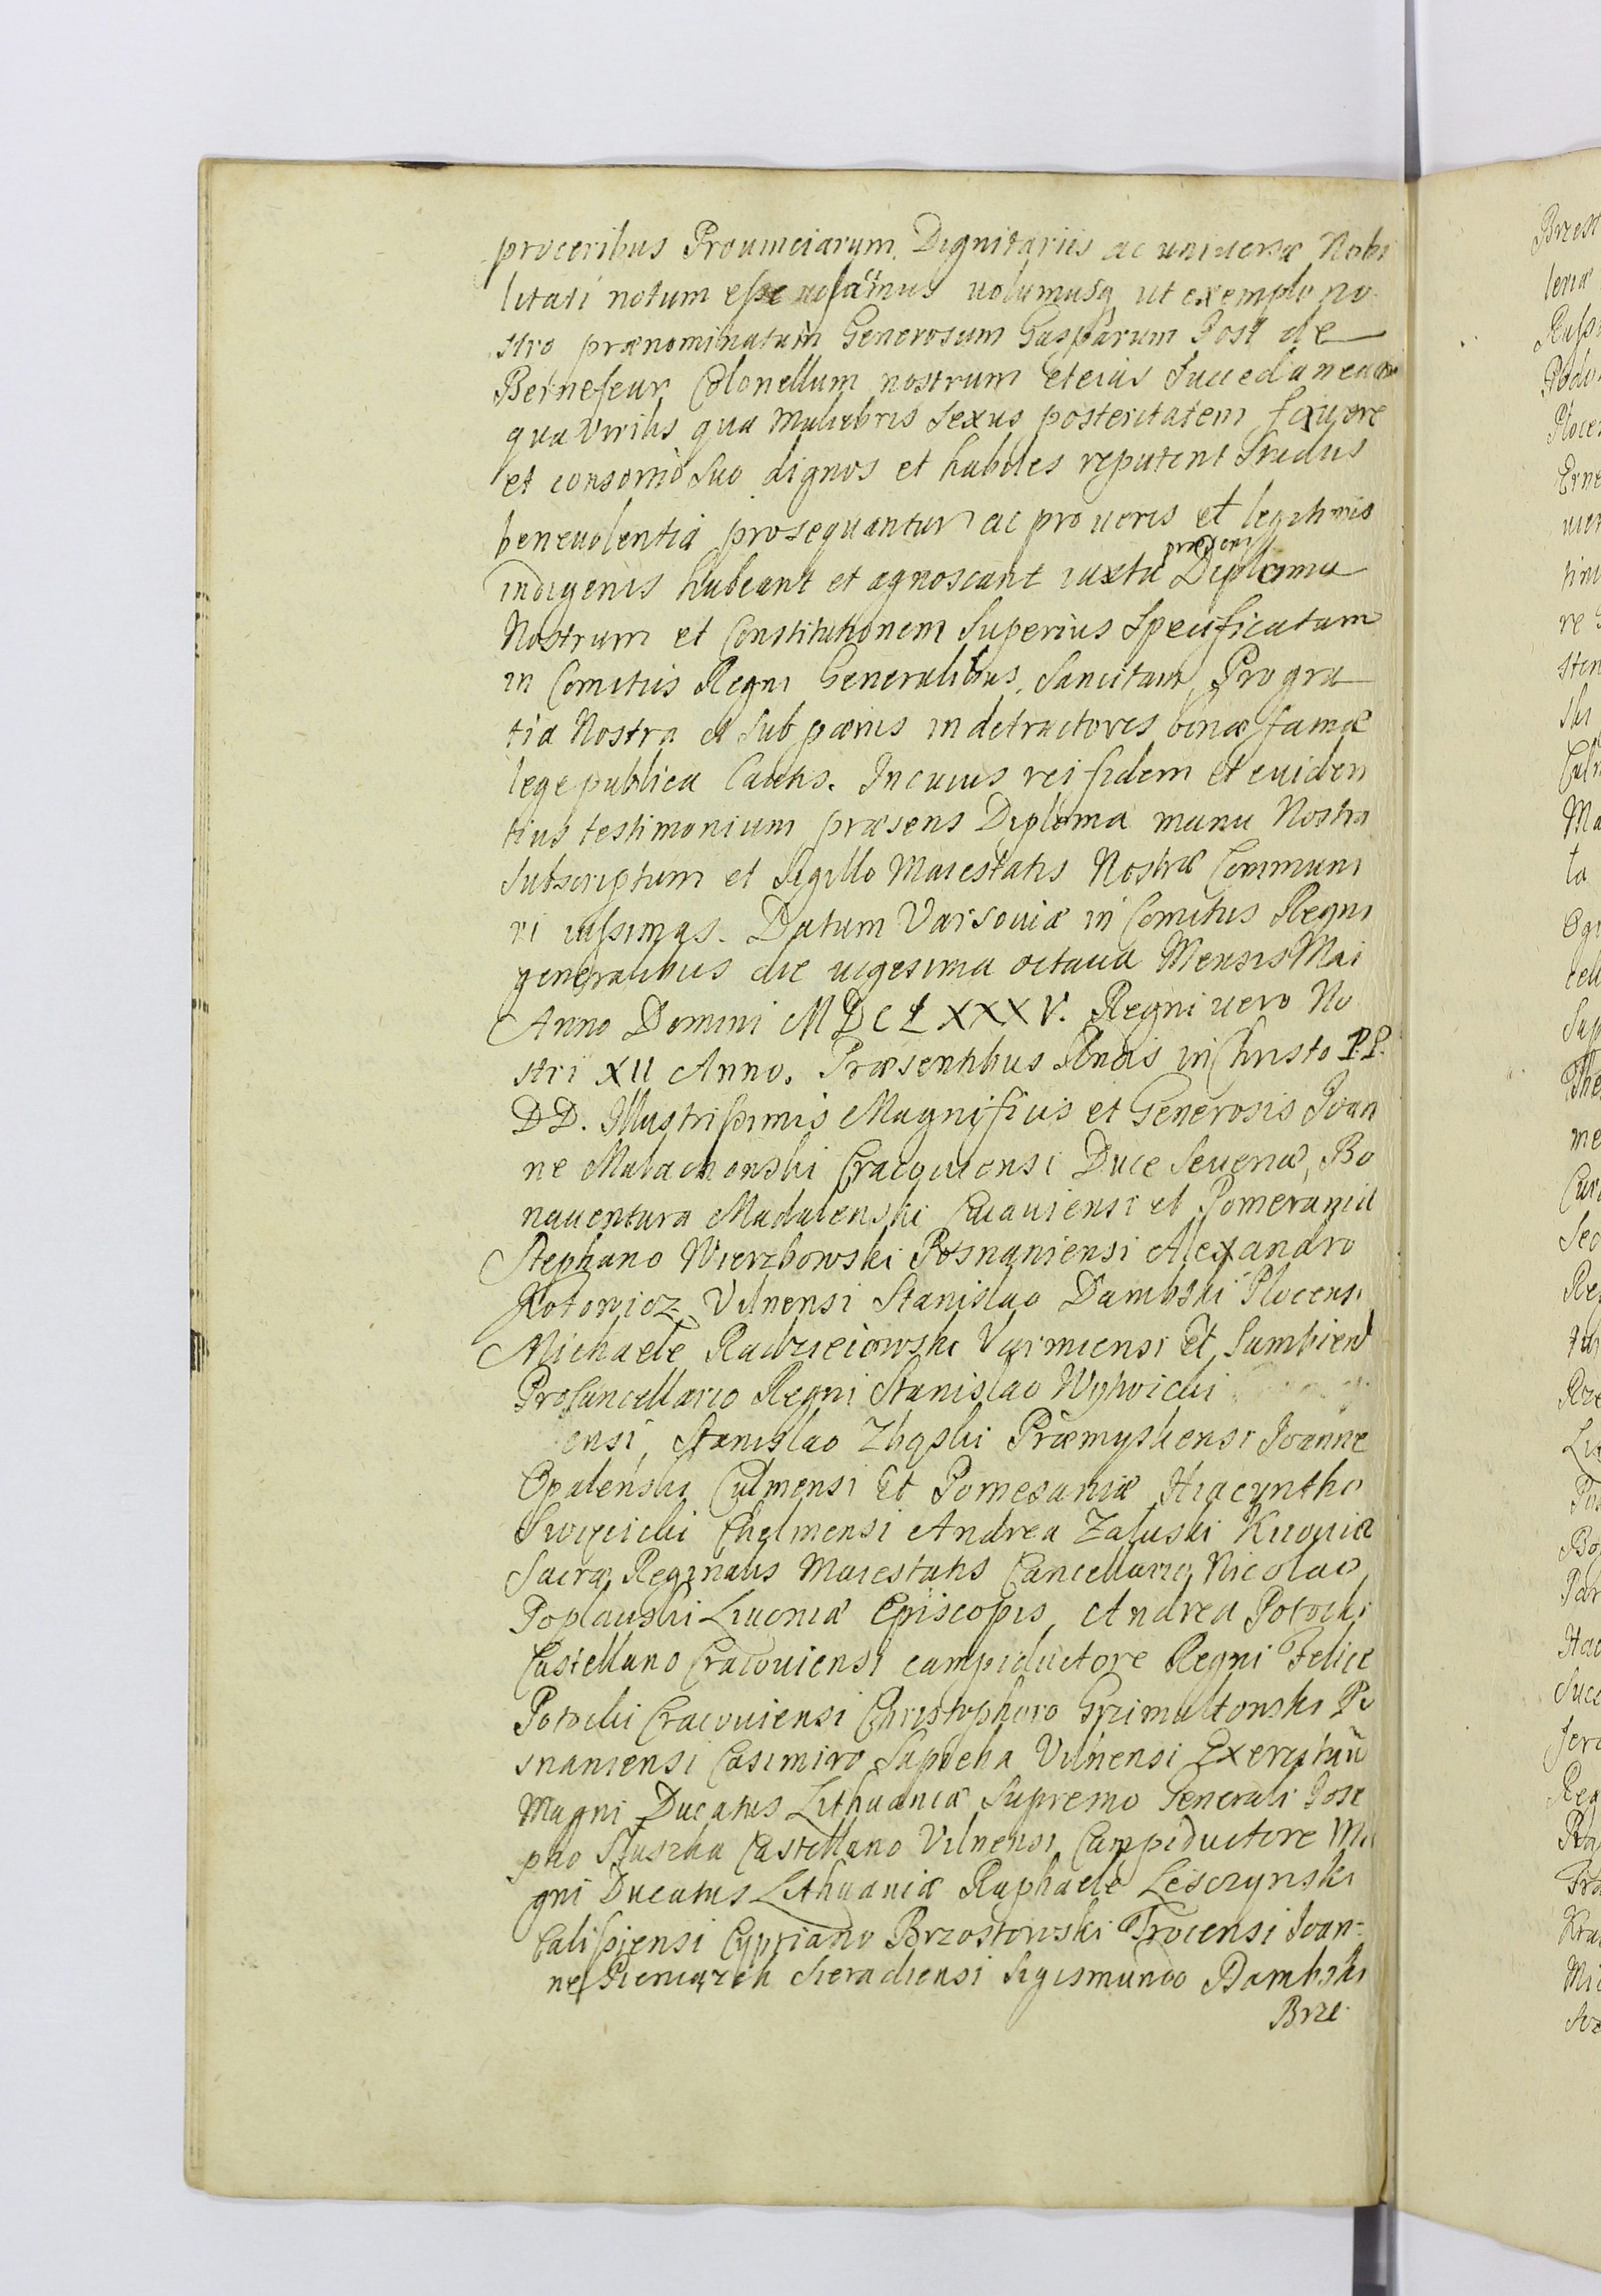 proceribus Prouinciarum Dignitariis ac uniuersæ Nobi
litati notum esse uolumusq ut exemplo no
stro prænominatum Generosum Gasparum Jost de
Bernefeur Colonellum nostrum et eius Succedaneam
qua Virilis qua Muliebris Sexus posteritatem fauore
et consortio Suo dignos et habiles reputent Studiis
beneuolentiâ prosequantur ac pro ueris et legitimis
indigenis habeant et agnoscant iuxta Diploma
Nostrum et Constitutionem Superius Specificatam
in Comitiis Regni Generalibus Sancitam Pro gra
tia Nostra et Sub pœnis in detractores bonæ famæ
lege publica Cautis. In cuius rei fidem et euiden
tius testimonium præsens Diploma manu Nostra
Subscriptum et Sigillo Maiestatis Nostræ Communi
ri iussimus. Datum Varsouiæ in Comitiis Regni
generalibus die uigesima octaua Mensis Mai
Anno Domini MDCLXXXV. Regni uero No
stri XII Anno. Præsentibus Rndis in Christo P.P.
DD. Illustrissimis Magnificis et Generosis Joan
ne Malachowski Cracouiensi Duce Seueriæ, Bo
nauentura Madalenski Cuiauiensi et Pomeraniæ
Stephano Wierzbowski Posnaniensi Alexandro
Kotowicz Vilnensi Stanislao Dambski Plocensi
Michaele Radzieiowski Varmiensi Et Sambiensi
ProCancellario Regni Stanislao Wyhvicki
ensi, Stanislao Zbąski Præmysliensi Joanne
Opalenski Culmensi Et Pomesaniæ Hiacyntho
Swięcicki Chelmensi Andrea Zaluski Kiouiæ
Sacræ Reginalis Maiestatis Cancellario, Nicolao
Poplawski Liuoniæ Episcopis, Andrea Potocki
Castellano Cracouiensi campiductore Regni Felice
Potocki Cracouiensi Christophoro Grzimultowski Po
snaniensi Casimiro Sapieha Vilnensi Exercituũ
Magni Ducatus Lithuaniæ Supremo Generali Jose
pho Sluszka Castellano Vilnensi Campiductore Ma
gni Ducatus Lithuaniæ Raphaele Lesczynski
Calissiensi Cypriano Brzostowski Trocensi Joan=
ne Pieniązek Sieradiensi Sigismundo Dambski
Brze